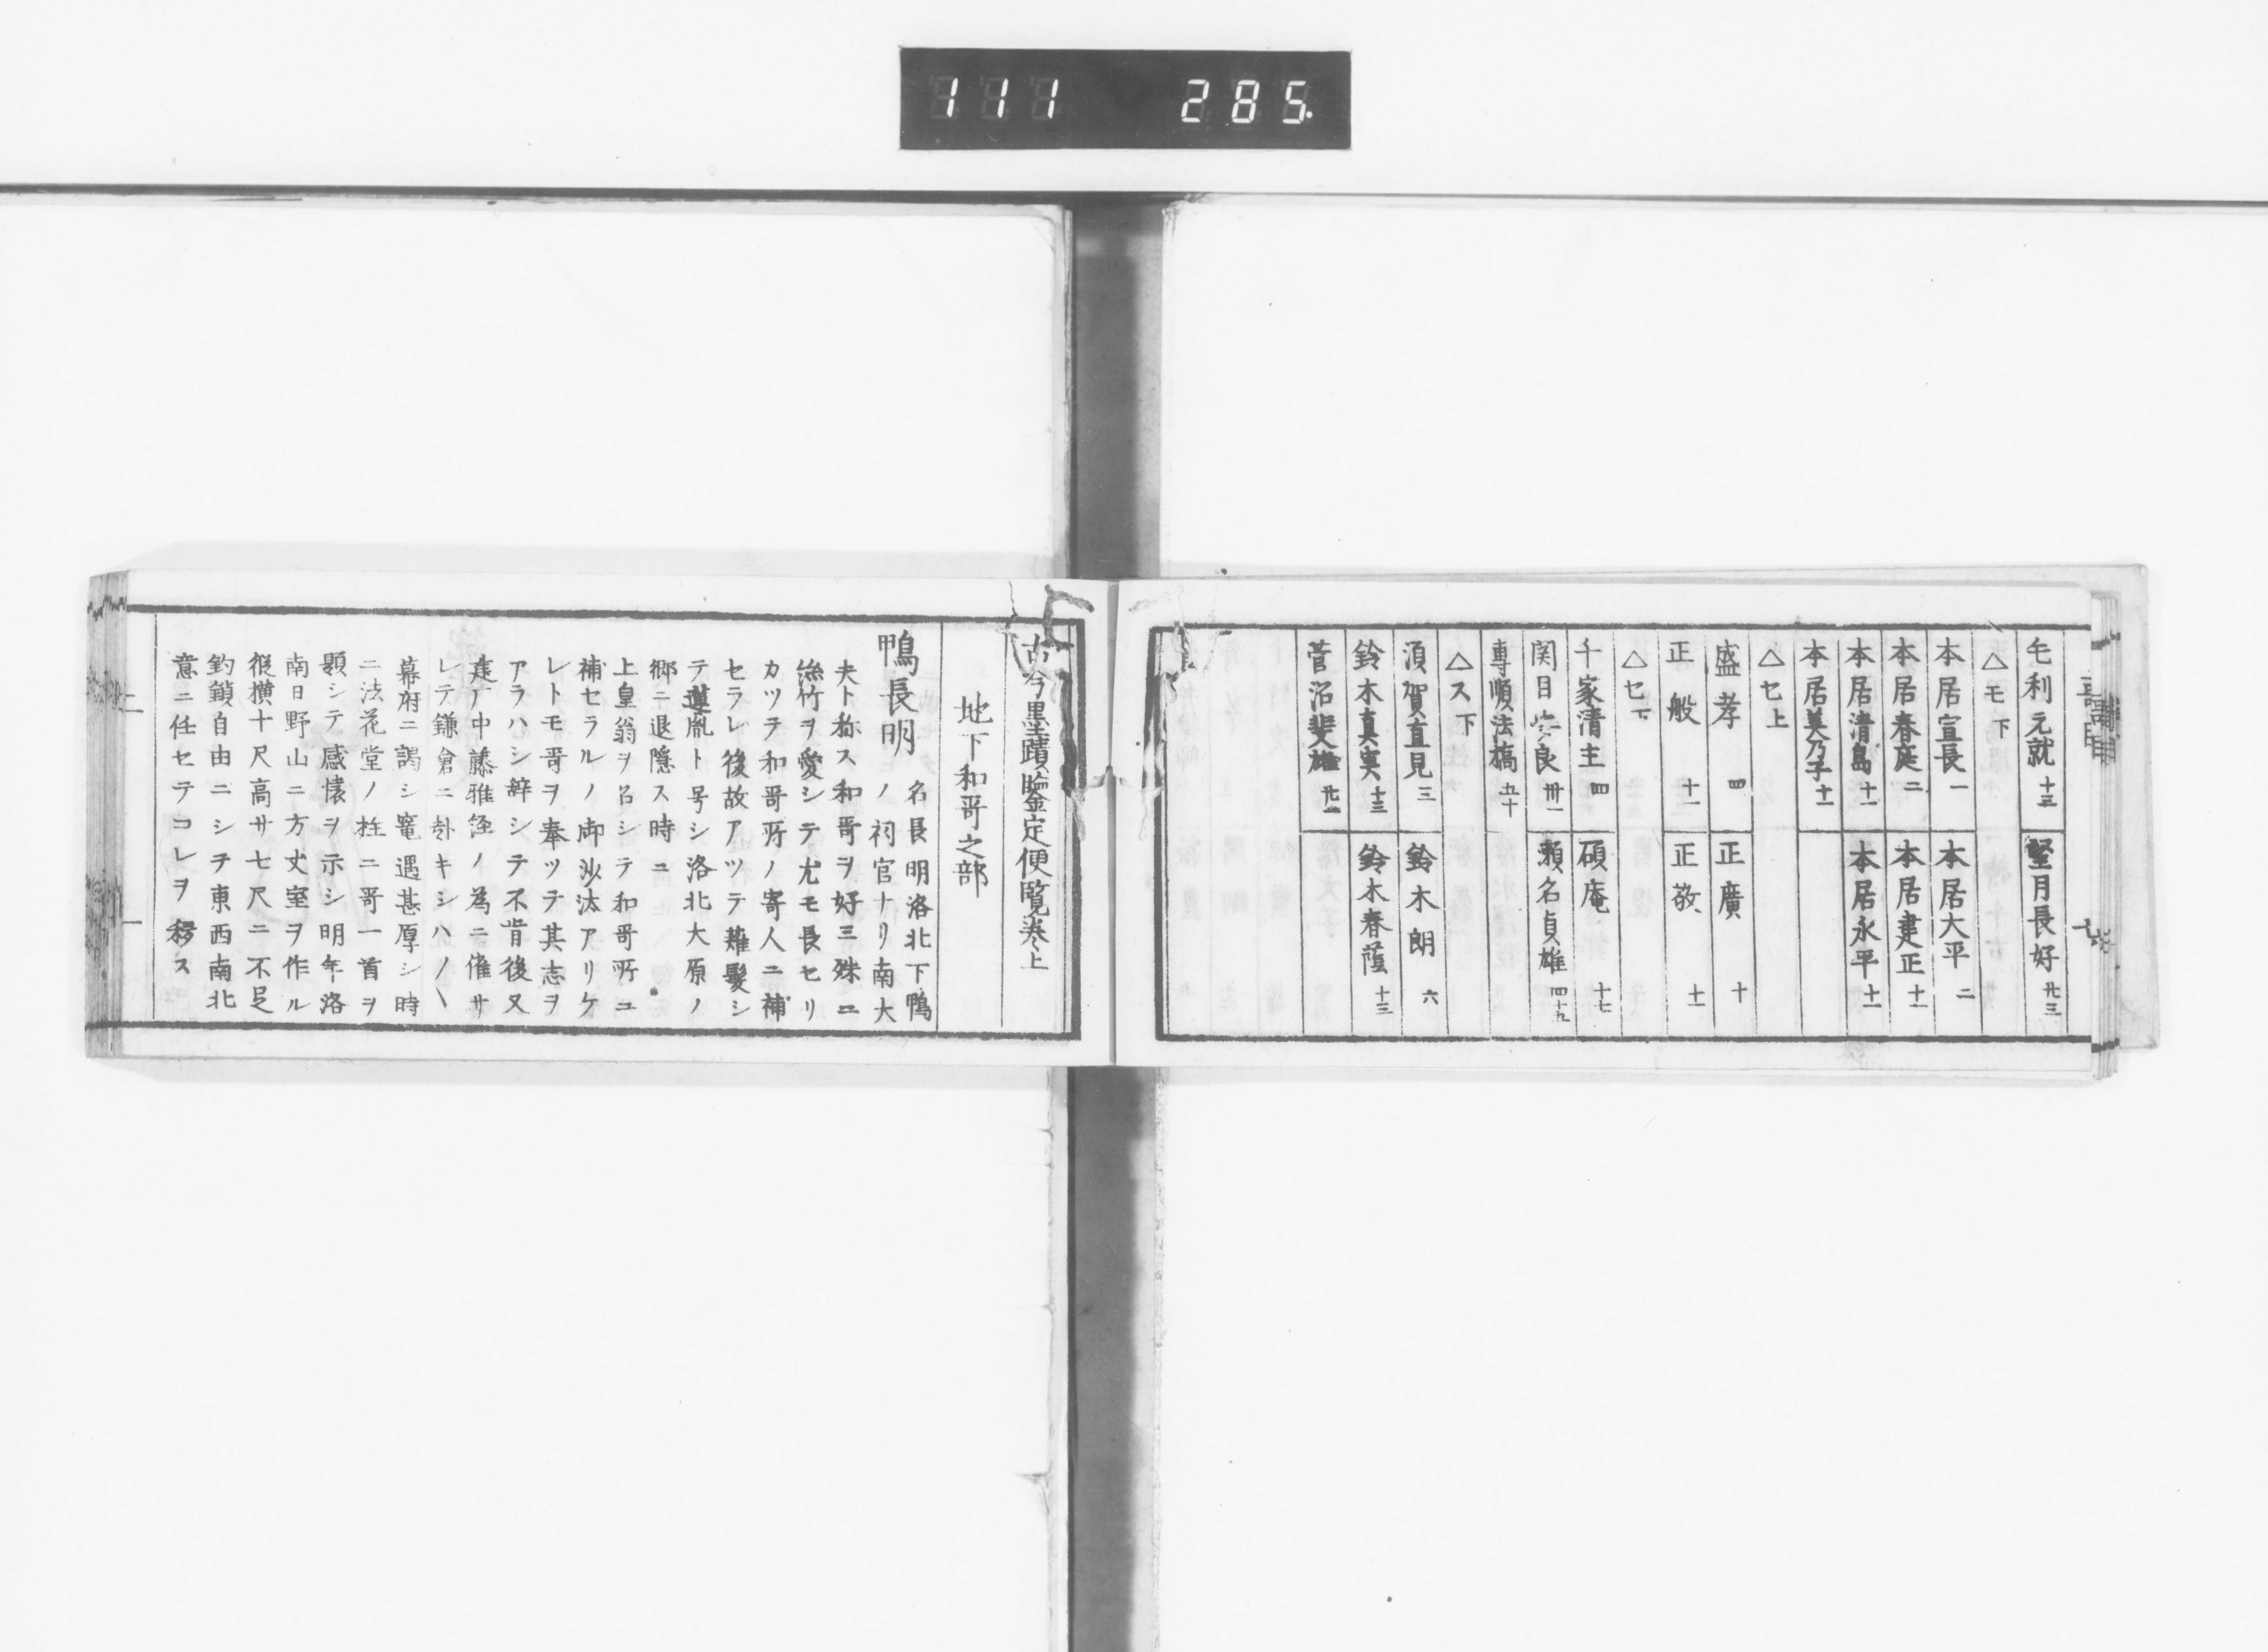 111 285.
毛利元就 十三
堅月長好 廿三
△モ下
本居宣長 一
本居大平 二
本居春庭 二
本居建正 十一
本居清島 十一
本居永平 十一
本居美乃子 十一
△セ上
盛孝 四
正廣 十
正般 十一
正敬 十一
△セ下
千家清主 四
碩庵 十七
関目 良 卅一
瀬名貞雄 四十九
専順法橋 五十
△ス下
須賀直見 三
鈴木朗 六
鈴木真実 十三
鈴木春蔭 十三
菅沼斐雄 廿一
古今墨蹟鑒定便覧巻上
地下和哥之部
鴨長明
名長明洛北下鴨
ノ祠官ナリ南大
夫ト称ス和哥ヲ好ミ殊ニ
絲竹ヲ愛シテ尤モ長セリ
カツテ和哥所ノ寄人ニ補
セラレ後故アツテ薙髪シ
テ蓮胤ト号シ洛北大原ノ
郷ニ退隠ス時ニ
上皇翁ヲ召シテ和哥所ニ
補セラルノ御沙汰アリケ
レトモ哥ヲ奉ツテ其志ヲ
アラハシ辭シテ不肯後又
建广中藤雅経ノ為ニ催サ
レテ鎌倉ニ赴キシハ〱
幕府ニ謁シ寵遇甚厚シ時
ニ法花堂ノ柱ニ哥一首ヲ
題シテ感懐ヲ示シ明年洛
南日野山ニ方丈室ヲ作ル
従横十尺高サ七尺ニ不足
釣鎖自由ニシテ東西南北
意ニ任セテコレヲ移ス
一